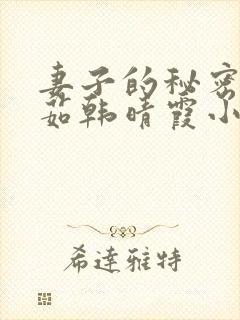 妻子的秘密
茹韩晴霞小
希達雅特